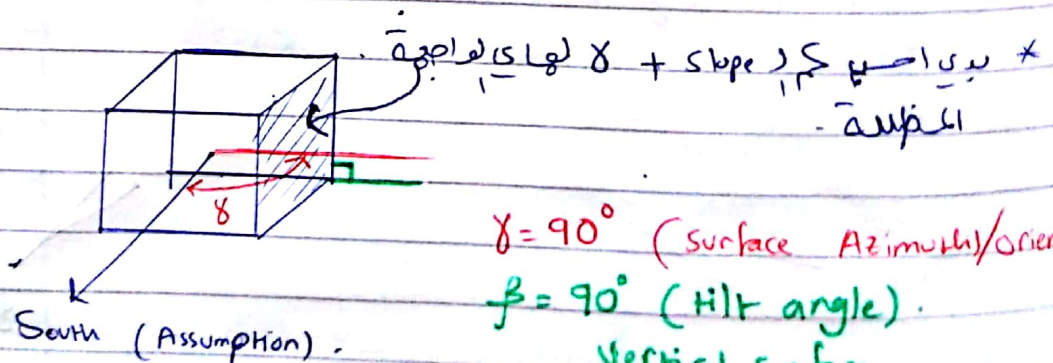 * بدي احسب كم ال slope + γ لهاي الواجهة.
المظللة.
γ
γ = 90° (surface Azimuth)/orien
β = 90° (tilt angle).
South (Assumption).